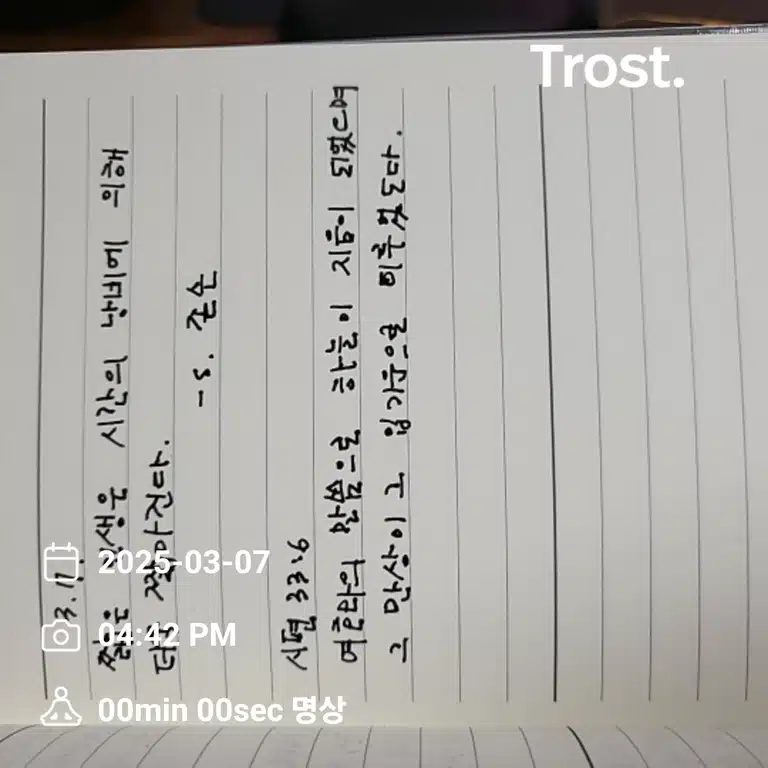 Trost.
3.17
짧은 인생은 시간의 낭비에 의해
더욱 짧아진다.
- S. 존슨
시편 33:6
여호와의 말씀으로 하늘이 지음이 되었으며
그 만상이 그 입기운으로 이루었도다.
2025-03-07
04:42 PM
00min 00sec 명상